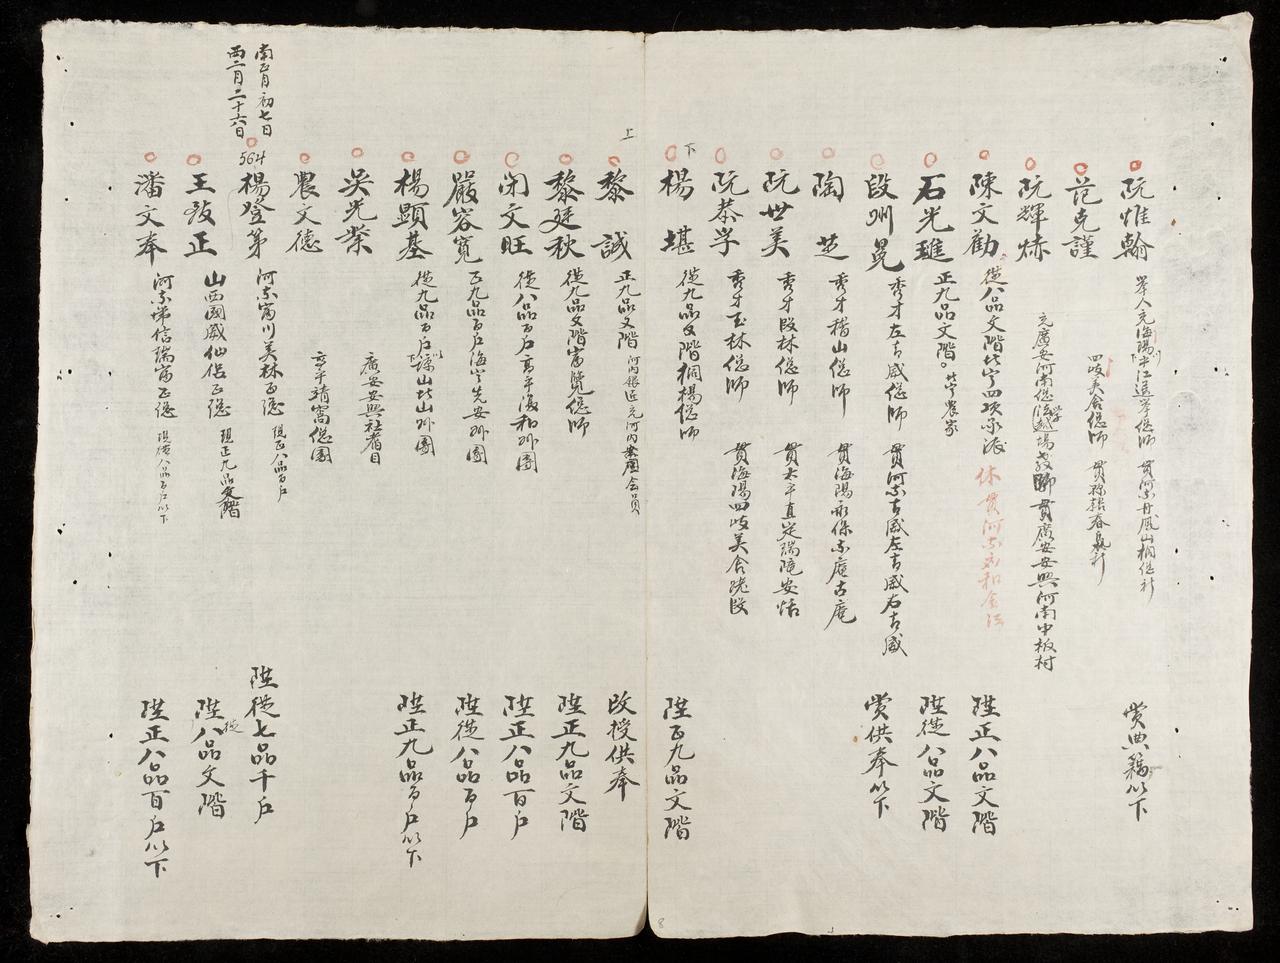 阮惟翰 舉人充海陽平江選舉總師 貫河東丹鳳山桐總社 賞典籍以下
范克謹 四岐美舍總師 貫
阮輝㷂 充廣安河南總 學 場 貫廣安安興河南中板村
陳文勸 從八品文階 北寧四項 派 休 貫河東 和 陞正八品文階
石光璡 正九品文階。北寧農家 陞從八品文階
段州晃 秀才左青威總師 貫河東青威左青威右青威 賞供奉以下
陶芝 秀才稽山總師 貫海陽永保東庵古庵
阮世美 秀才段林總師 貫太平直定瑞 安恬
阮恭學 秀才玉林總師 貫海陽四岐美舍 段
下
楊堪 從九品文階桐楊總師 陞正九品文階
上
黎誠 正九品文階 河內銀匠充河內 會員 改授供奉
黎廷秋 從九品文階富覽總師 陞正九品文階
閉文旺 從八品百戶高平復和州團 陞正八品百戶
嚴容寬 正九品百戶海寧先安州團 陞從八品百戶
楊顯基 從九品百戶諒山北山州團 陞正九品百戶以下
吳光榮 廣安安興社耆目
農文德 高平靖 總團
南正月初七日
西二月二十六日
564
楊登第 河東富川美林正總 現正八品百戶 陞從七品千戶
王 正 山西國威仙侶正總 現正九品文階 陞從八品文階
潘文奉 河東 信瑞富正總 現從八品百戶以下 陞正八品百戶以下
8